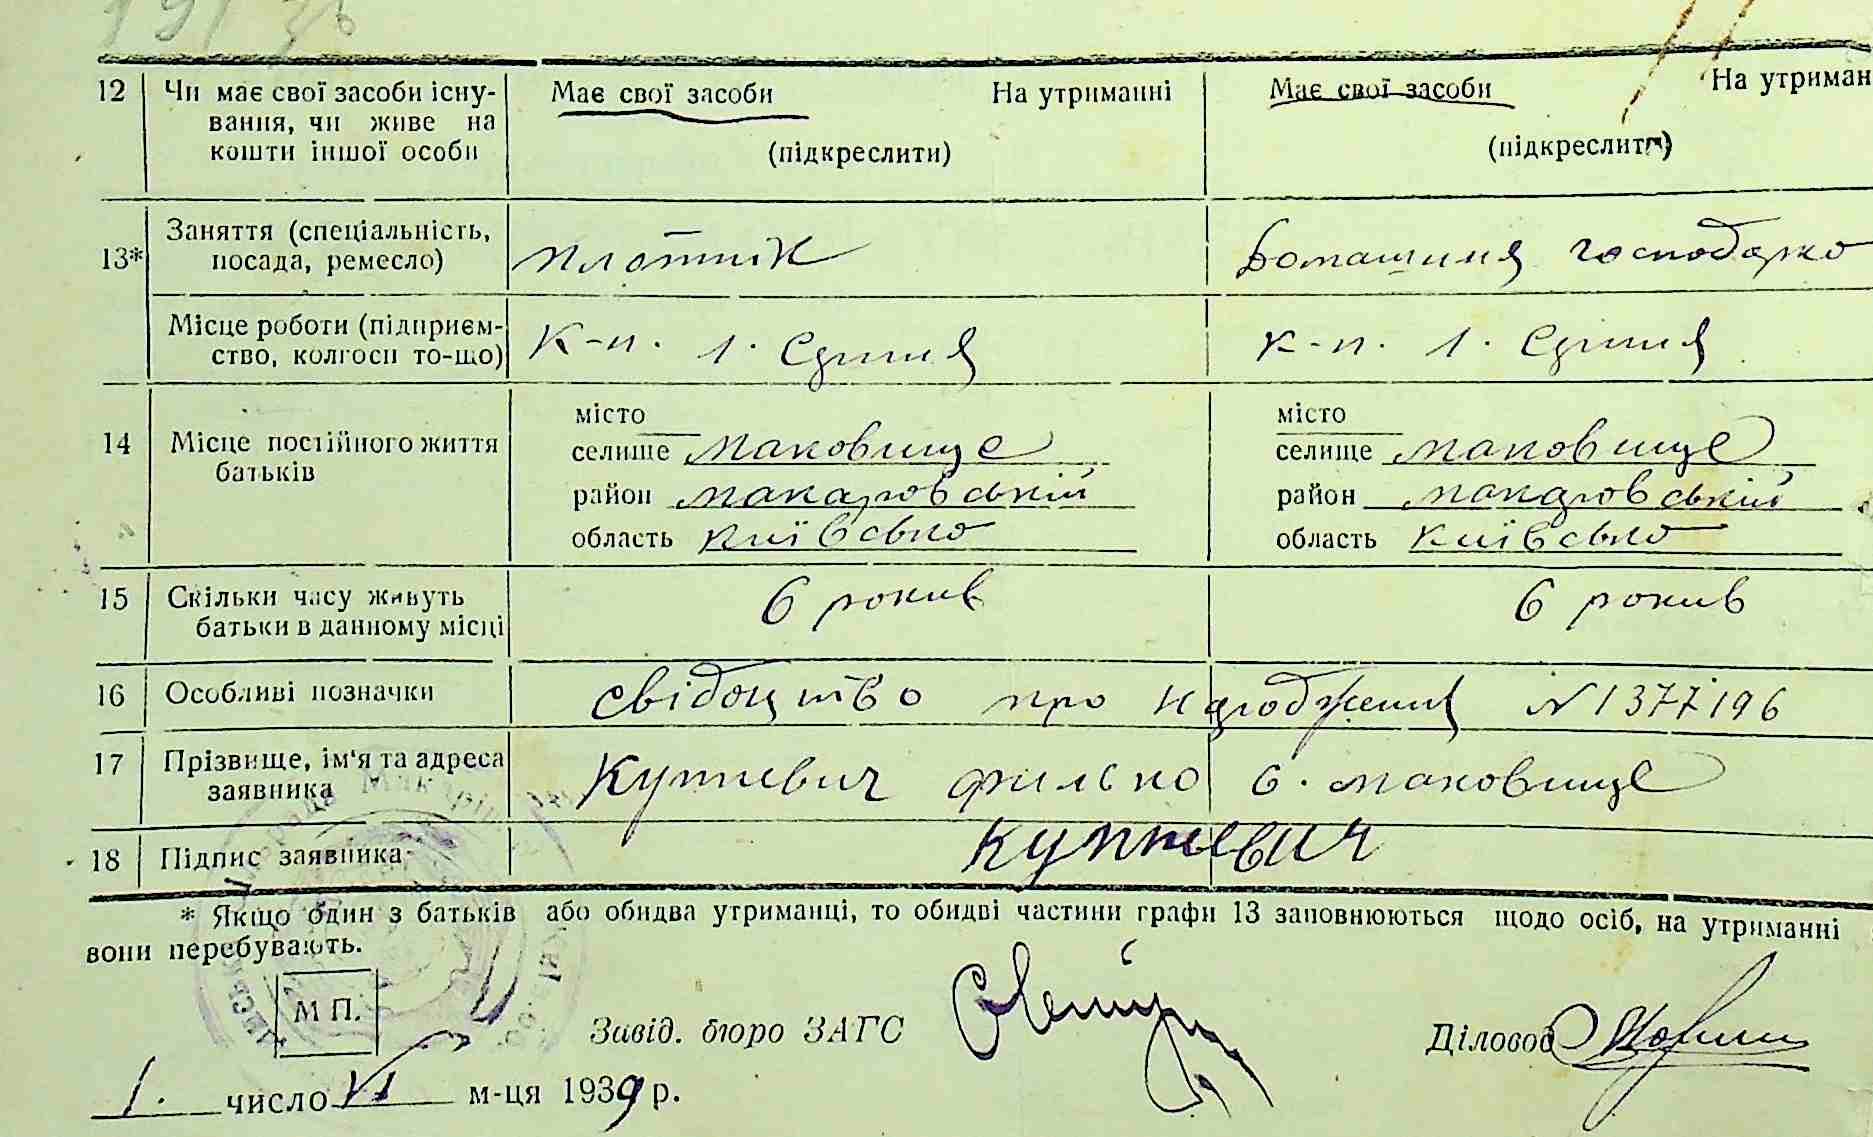 12 Чи має свої засоби існу- Має свої засоби На утриманні Має свої засоби На утриман
вання, чи живе на
кошти іншої особи (підкреслити) (підкреслити)
13* Заняття (спеціальність, посада, ремесло) плотник Домашиня господарко
Місце роботи (підприєм- к-п. 1. Єрпня к-п. 1. Єрпня
ство, колгосп то-що)
місто місто
14 Місце постійного життя селище Маковище селище Маковище
батьків район макаровській район макаровській
область київсько область київсько
15 Скільки часу живуть 6 рокив 6 рокив
батьки в данному місці
16 Особливі позначки свідоцтво про народження N 1377196
17 Прізвище, ім'я та адреса филько с. маковище
заявника
18 Підпис заявника
* Якщо один з батьків або обидва утриманці, то обидві частини графи 13 заповнюються щодо осіб, на утриманні
вони перебувають.
М П.
Завід. бюро ЗАГС Діловод
1. число VI м-ця 1939 р.